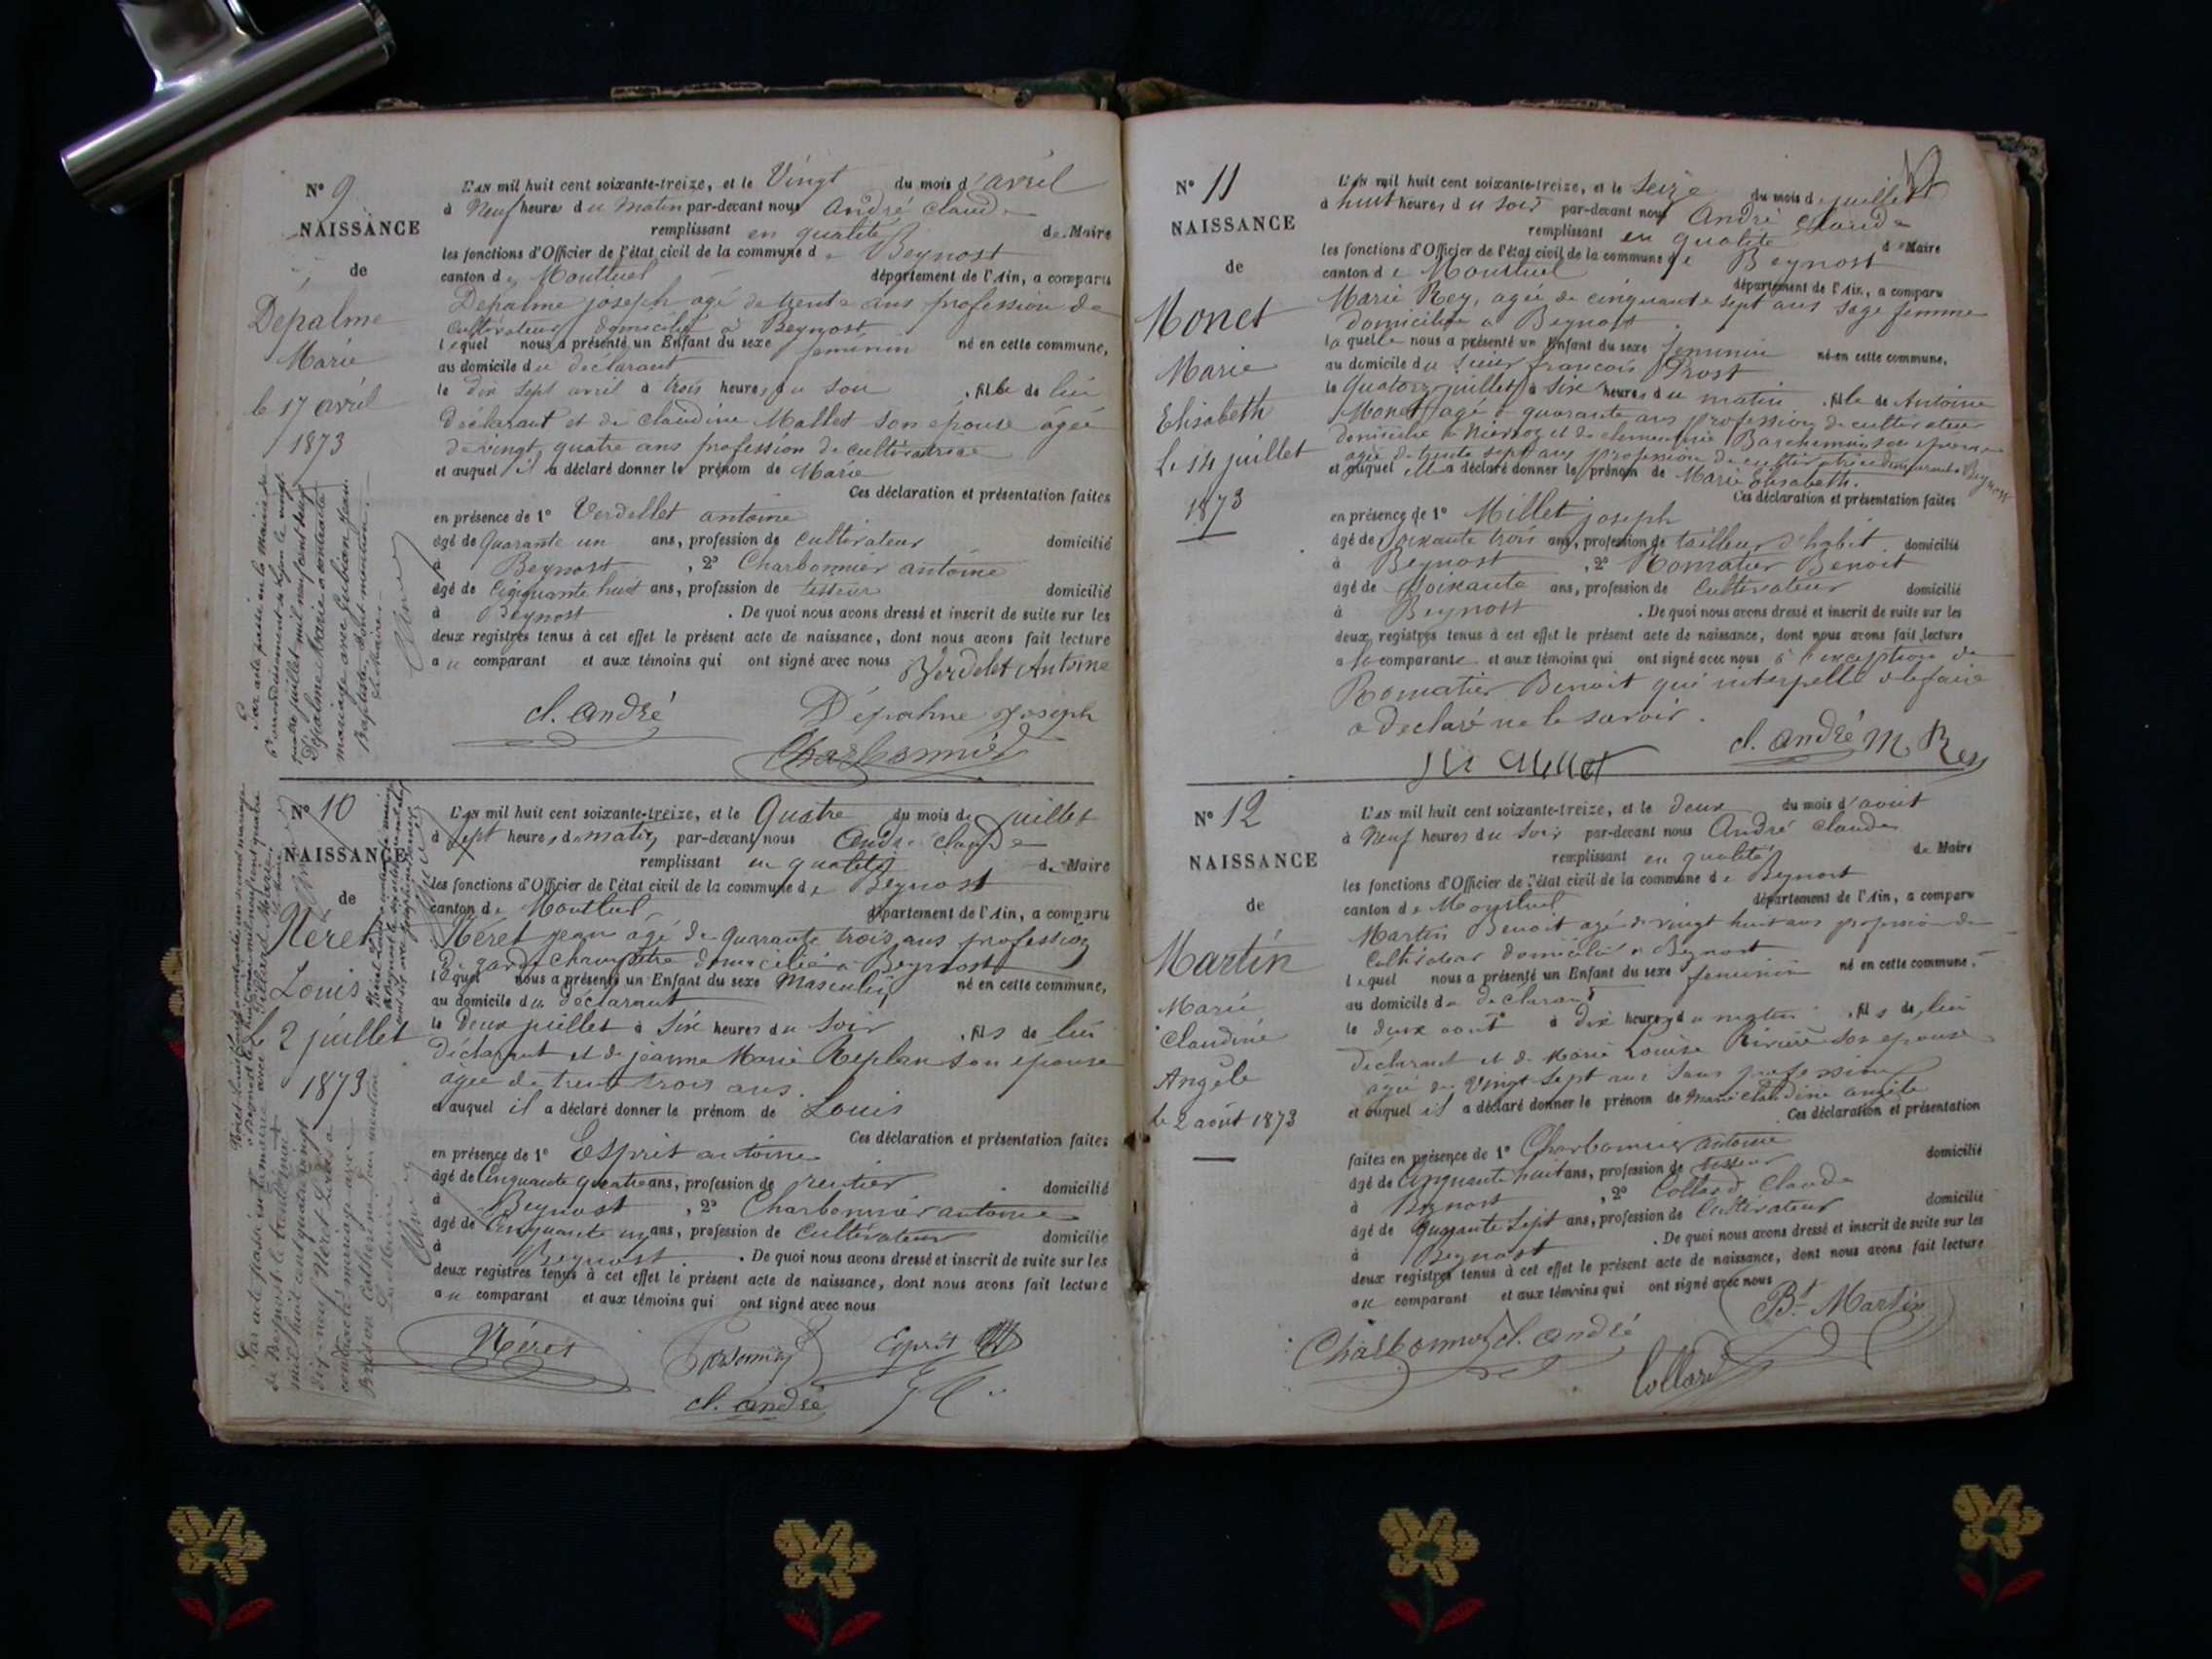 N° 9
NAISSANCE
de
Depalme
Marie
le 17 avril
1873
L'AN mil huit cent soixante-treize, et le Vingt du mois d'avril
à Neuf heures du Matin par-devant nous André Claude
remplissant en qualité de Maire
les fonctions d'Officier de l'état civil de la commune de Beynost
canton de Montluel département de l'Ain, a comparu
Depalme joseph agé de trente ans profession de
Cultivateur domicilié à Beynost
lequel nous a présenté un Enfant du sexe feminin né en cette commune,
au domicile du déclarant
le dix sept avril à trois heures du soir , fille de lui
déclarant et de Claudine Mallet son epouse agée
de vingt quatre ans profession de cultivatrice
et auquel il a déclaré donner le prénom de Marie
Ces déclaration et présentation faites
en présence de 1° Verdellet antoine
âgé de Quarante un ans, profession de Cultivateur domicilié
à Beynost , 2° Charbonnier antoine
âgé de Cinquante huit ans, profession de tisseur domicilié
à Beynost . De quoi nous avons dressé et inscrit de suite sur les
deux registres tenus à cet effet le présent acte de naissance, dont nous avons fait lecture
au comparant et aux témoins qui ont signé avec nous Verdelet Antoine
cl. André Dépalme Joseph
Charbonnier
Par acte passé en la Mairie de
quatre juillet mil neuf cent
Dépalme Marie a contracté
mariage avec Jean
Baptiste, dont mention.
Le Maire
N° 10
NAISSANCE
de
Néret
Louis
le 2 juillet
1873
L'AN mil huit cent soixante-treize, et le Quatre du mois de juillet
à Sept heures du matin par-devant nous André Claude
remplissant en qualité de Maire
les fonctions d'Officier de l'état civil de la commune de Beynost
canton de Montluel département de l'Ain, a comparu
Néret jean agé de quarante trois ans profession
de garde champêtre domicilié à Beynost
lequel nous a présenté un Enfant du sexe Masculin né en cette commune,
au domicile du déclarant
le deux juillet à Six heures du Soir , fils de lui
déclarant et de jeanne Marie Replan son epouse
agée de trente trois ans.
et auquel il a déclaré donner le prénom de Louis
Ces déclaration et présentation faites
en présence de 1° Esprit antoine
âgé de Cinquante quatre ans, profession de rentier domicilié
à Beynost , 2° Charbonnier antoine
âgé de Cinquante un ans, profession de Cultivateur domicilié
à Beynost . De quoi nous avons dressé et inscrit de suite sur les
deux registres tenus à cet effet le présent acte de naissance, dont nous avons fait lecture
au comparant et aux témoins qui ont signé avec nous
Néret Esprit
cl. André
Par acte passé en la mairie
de Beynost le
mil huit cent quatre vingt
dix-neuf Néret Louis a
contracté mariage avec
Catherine, dont mention
Le Maire
N° 11
NAISSANCE
de
Monet
Marie
Elisabeth
Le 14 juillet
1873
L'AN mil huit cent soixante-treize, et le Seize du mois de juillet
à huit heures du soir par-devant nous André Claude
remplissant en qualité de Maire
les fonctions d'Officier de l'état civil de la commune de Beynost
canton de Montluel département de l'Ain, a comparu
Marie Rey, agée de cinquante sept ans sage femme
domiciliée à Beynost
laquelle nous a présenté un Enfant du sexe feminin né en cette commune,
au domicile du sieur françois Prost
le Quatorze juillet à Six heures du matin , fille de Antoine
Monet agé de quarante ans profession de cultivateur
domicilié à
agée de trente sept ans profession de cultivatrice
et auquel elle a déclaré donner le prénom de Marie Elisabeth.
Ces déclaration et présentation faites
en présence de 1° Millet joseph
âgé de Soixante trois ans, profession de tailleur d'habit domicilié
à Beynost , 2° Romatier Benoit
âgé de Soixante ans, profession de Cultivateur domicilié
à Beynost . De quoi nous avons dressé et inscrit de suite sur les
deux registres tenus à cet effet le présent acte de naissance, dont nous avons fait lecture
a la comparante et aux témoins qui ont signé avec nous à l'exception de
Romatier Benoit qui interpellé de le faire
a déclaré ne le savoir.
Millet cl. André M. Rey
N° 12
NAISSANCE
de
Martin
Marie
Claudine
Angèle
le 2 août 1873
L'AN mil huit cent soixante-treize, et le deux du mois d'août
à Neuf heures du Soir par-devant nous André Claude
remplissant en qualité de Maire
les fonctions d'Officier de l'état civil de la commune de Beynost
canton de Montluel département de l'Ain, a comparu
Martin Benoit agé de vingt huit ans profession de
Cultivateur domicilié à Beynost
lequel nous a présenté un Enfant du sexe feminin né en cette commune,
au domicile du déclarant
le deux août à dix heures du matin , fils de lui
déclarant et de Marie Louise Rivière son epouse
agée de Vingt Sept ans Sans profession
et auquel il a déclaré donner le prénom de Marie Claudine angèle
Ces déclaration et présentation
faites en présence de 1° Charbonnier antoine domicilié
âgé de Cinquante huit ans, profession de tisseur
à Beynost , 2° Collard Claude
âgé de Quarante Sept ans, profession de Cultivateur domicilié
à Beynost . De quoi nous avons dressé et inscrit de suite sur les
deux registres tenus à cet effet le présent acte de naissance, dont nous avons fait lecture
au comparant et aux témoins qui ont signé avec nous
Bt Martin
Charbonnier cl. André
Collard